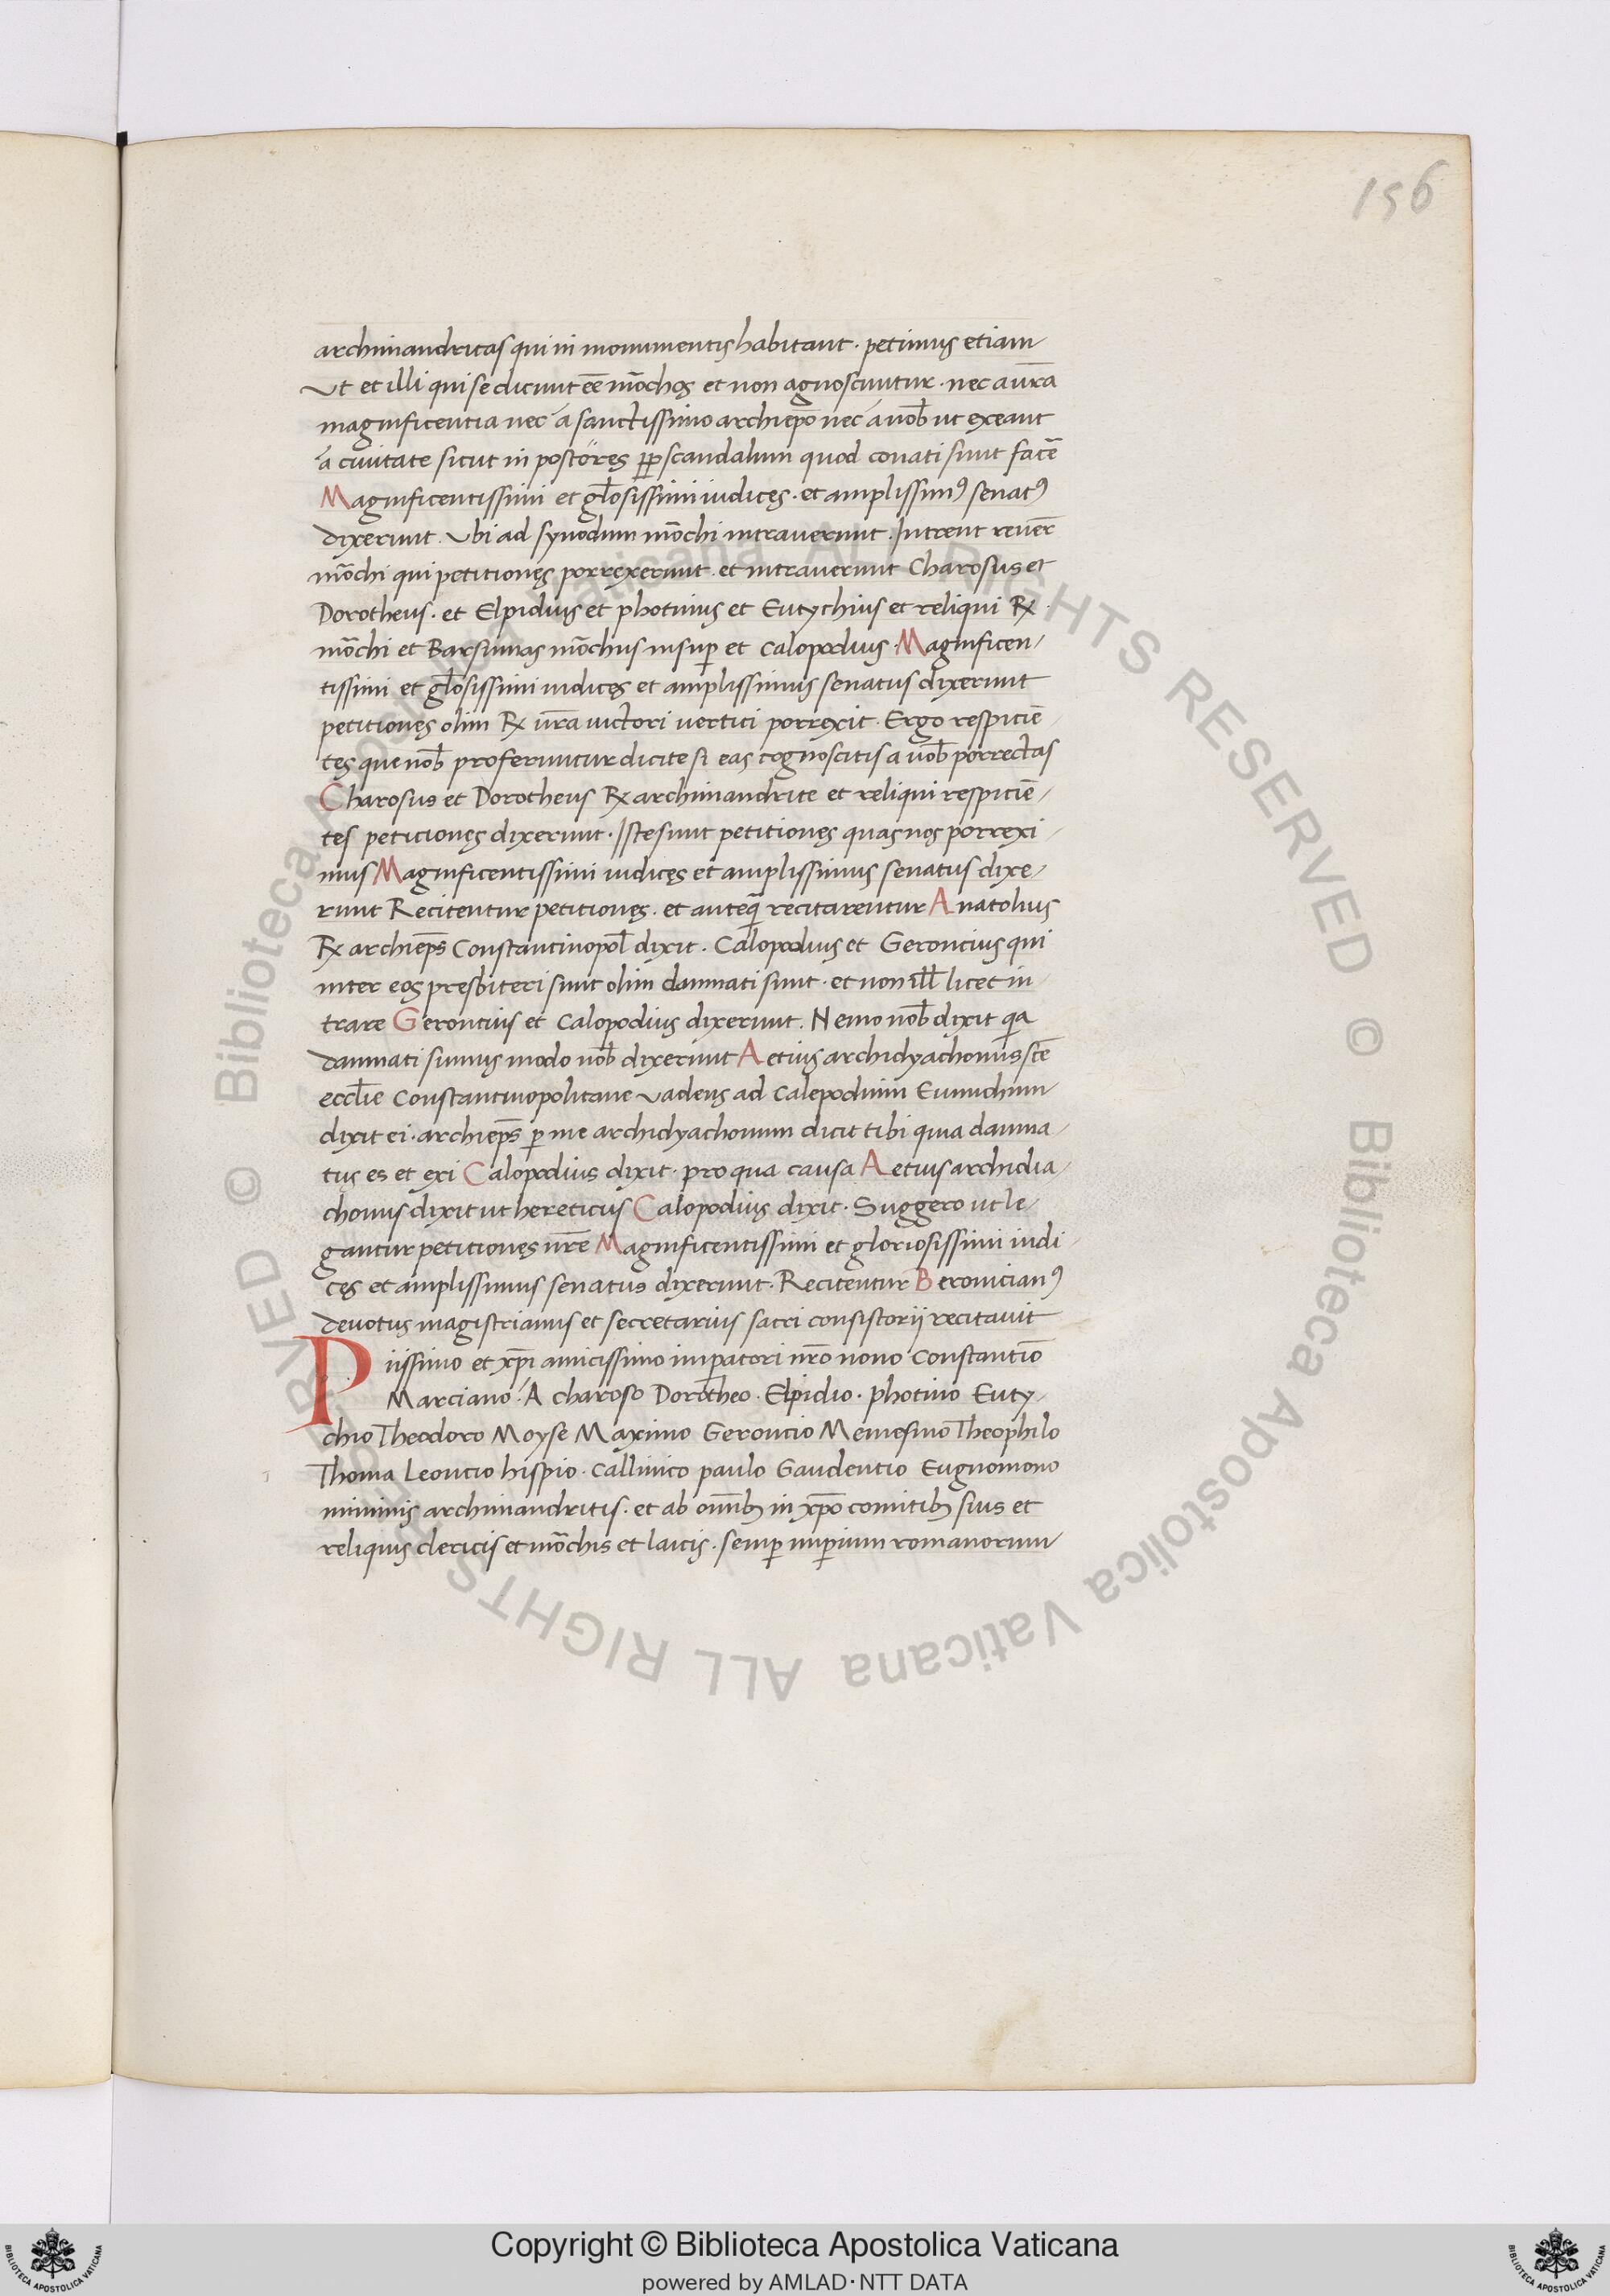 156
archimandritas qui in monumentis habitant · petimus etiam
Ut et illi qui se dicunt eē mōchos et non agnoscuntur · nec a ura᷉
magnificentia nec a sanctissimo archiepō nec a nob̄ ut exeant
a ciuitate sicut in postores ꝓp scandalum quod conati sunt facē
Magnificentissimi et gl̄osissimi iudices · et amplissimꝰ senatꝰ
dixerunt. Ubi ad synodum mōchi intrauerunt. Intrent reuer̄
mōchi qui petitiones porrexerunt. et intrauerunt Charosus et
Dorotheus · et Elpidius et photinus et Eutychius et reliqui R̷x ·
mōchi et Barsumas mōchus insup̄ et calopodius · Magnificen/
tissimi et gl̄osissimi iudices et amplissimus senatus dixerunt
petitiones olim R̷x ur̄a uictori uertici porrexit · Ergo respiciē/
tes que nob̄ proferuntur dicite si eas cognoscitis a uob̄ porrectas
Charosus et Dorotheus R̷x archimandrite et reliqui respiciē/
tes peticiones dixerunt · Iste sunt petitiones quas nos porrexi/
mus Magnificentissimi iudices et amplissimus senatus dixe/
runt Recitentur petitiones. et anteq̄ recitarentur Anatolius
R̷x archiep̄s Constantinopol̄ dixit. Calopodius et Geroncius qui
inter eos presbiteri sunt olim damnati sunt · et non ill̄ licet in/
trare Geroncius et calopodius dixerunt. Nemo nob̄ dixit qa
damnati sumus modo nob̄ dixerunt Aetius archidyachonus scē
eccl̄ie Constantinopolitane uadens ad Calepodium Eunuchum
dixit ei · archiep̄s p̄ me archidyachonum dicit tibi quia damna/
tus es et exi Calopodius dixit · pro qua causa Aetius archidia/
chonus dixit ut hereticus Calopodius dixit · Suggero ut le/
gantur petitiones nr̄e Magnificentissimi et gloriosissimi iudi/
ces et amplissimus senatus dixerunt · Recitentur Beronicianꝰ
deuotus magistrianus et secretarius sacri consistorij recitauit
Piissimo et xp̄i amicissimo imp̄atori nr̄o nouo Constantīo
Marciano · A charoso Dorotheo · Elpidio · photino Euty/
chio Theodoro Moyse Maximo Geroncio Memesino Theophilo
Thoma Leoncio hispio · Callinico paulo Gaudentio Eugnomono
minimis archimandritis · et ab om̄ib; in xp̄o comitib; suis et
reliquis clericis et mōchis et laicis · semp̄ imp̄ium romanorum
Copyright © Biblioteca Apostolica Vaticana
powered by AMLAD·NTT DATA